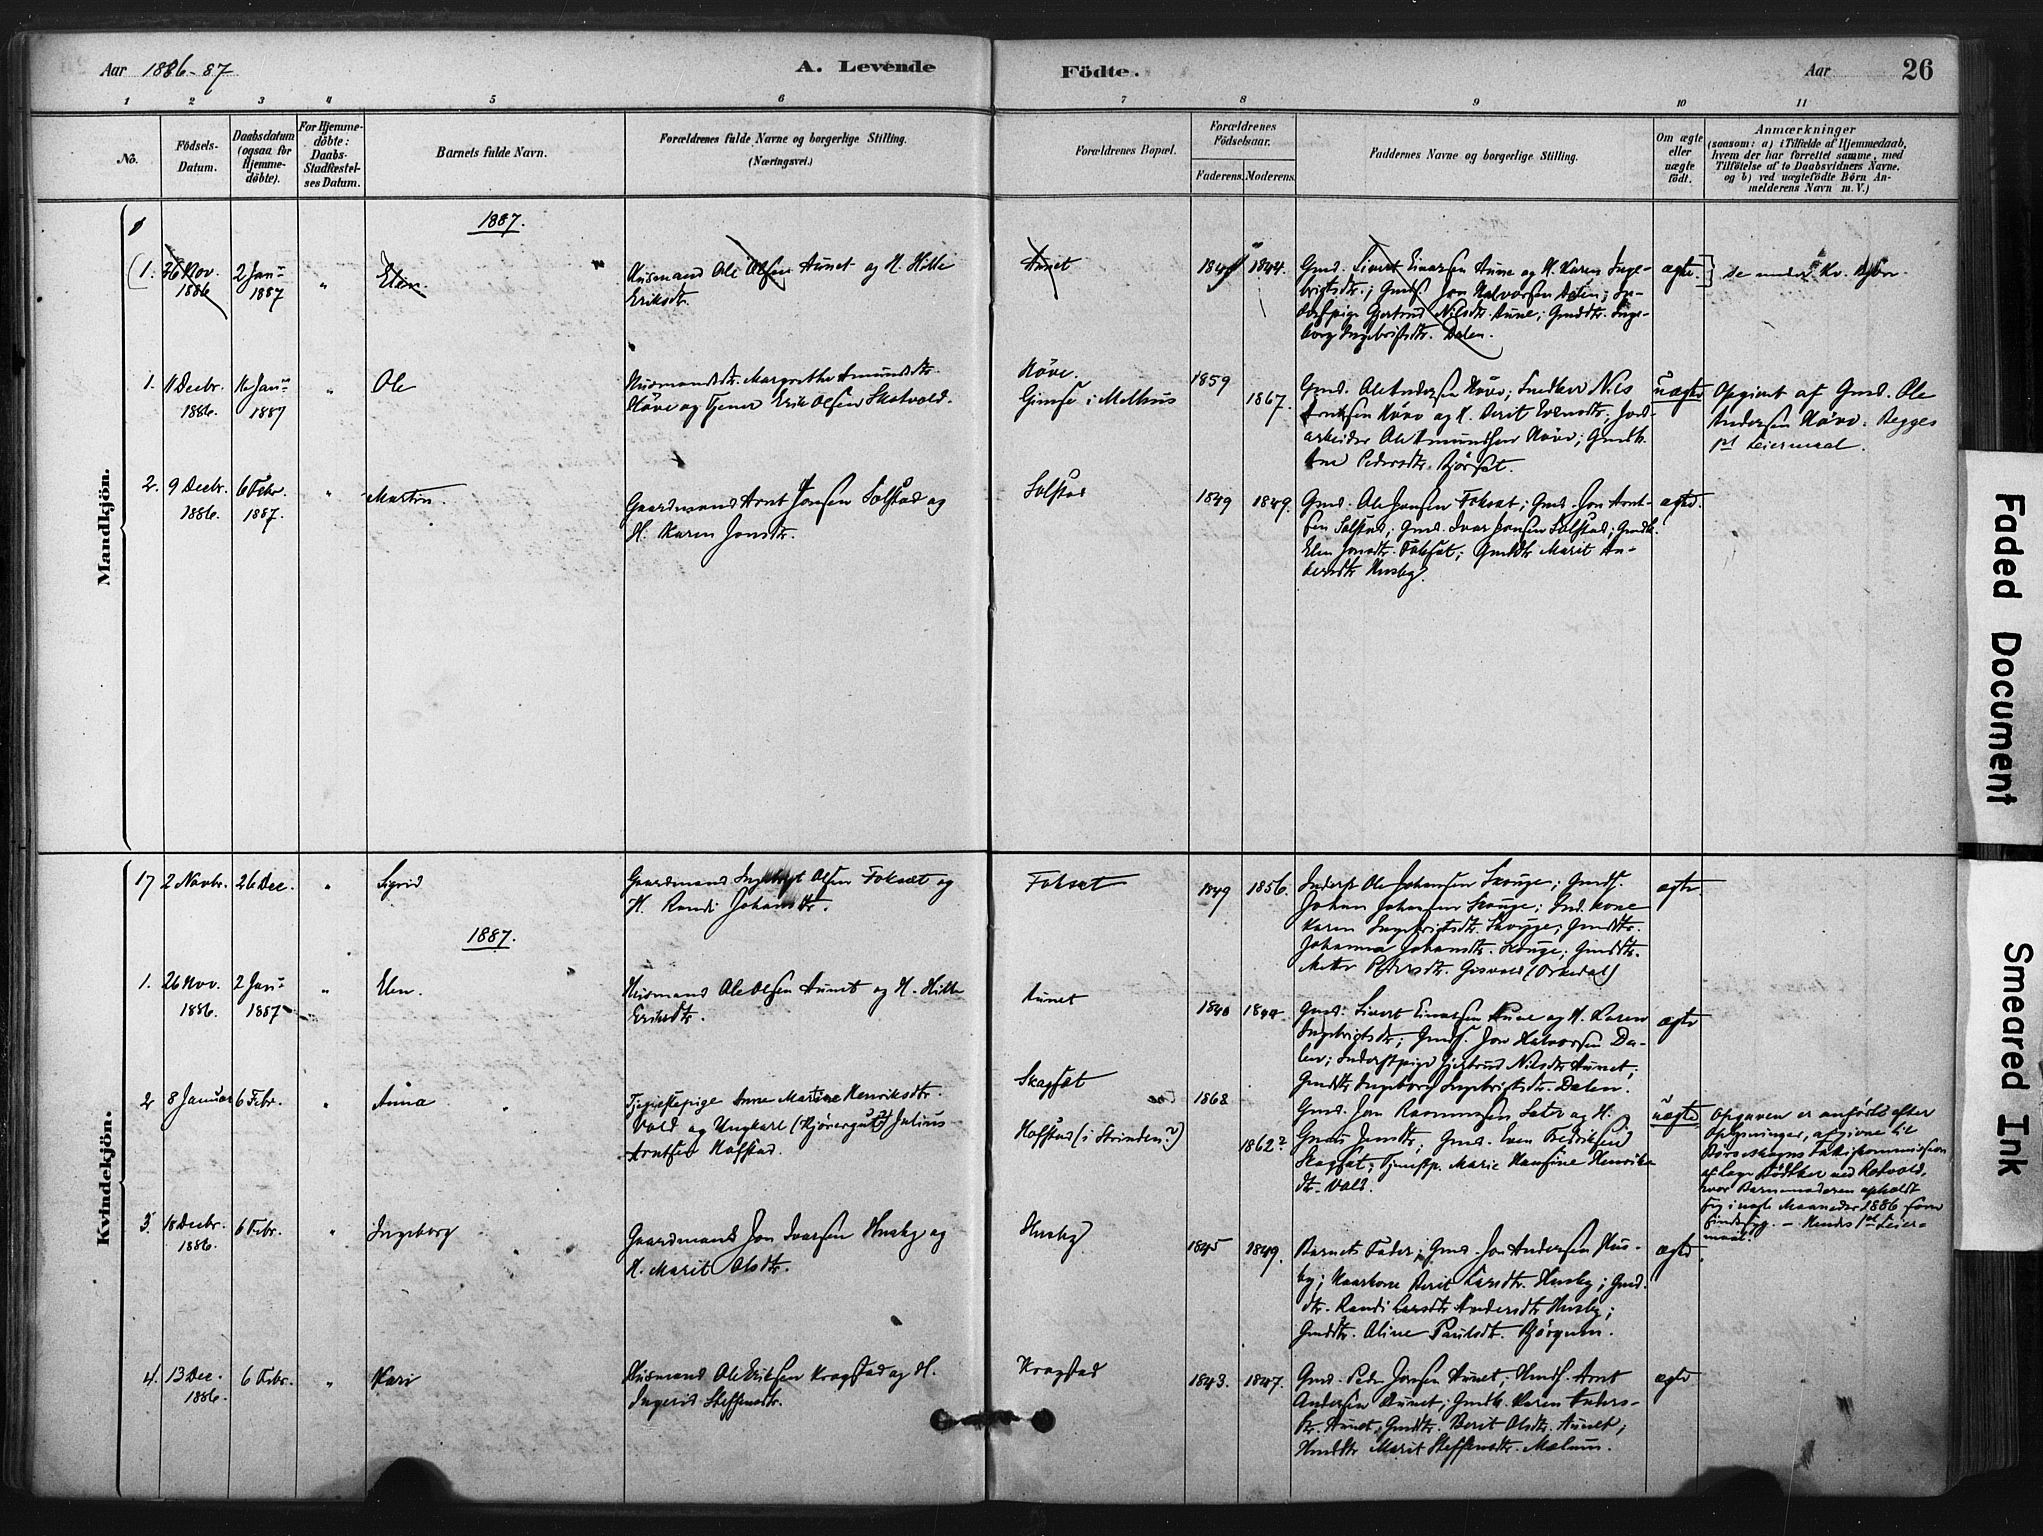 Aar 1886-87
A. Levende
Födte.
Aar
26
1 2 3 4 5 6 7 8 9 10 11
No.
Födsels-
Datum.
Daabsdatum
(ogsaa for
Hjemme-
döbte).
For Hjemme-
döbte:
Daabs-
Stadfæstel-
ses Datum.
Barnets fulde Navn.
Forældrenes fulde Navne og borgerlige Stilling.
(Næringsvei.)
Forældrenes Bopæl.
Forældrenes
Födselsaar.
Faderens.
Moderens.
Faddernes Navne og borgerlige Stilling.
Om ægte
eller
uægte
födt.
Anmærkninger
(saasom: a) i Tilfælde af Hjemmedaab,
hvem der har forrettet samme, med
Tilföielse af to Daabsvidners Navne.
og b) ved uægtefödte Börn An-
melderens Navn m. V.)
Mandkjön.
1887.
1. 26 Nov.
1886
2 Jan.
1887
"
Elen
Husmand Ole Olsen Aunet og H. Hille
Eriksdtr.
Aunet
1844.
Gmd. Sivert Einarsen Aune og H. Karen Inge-
brigtsdtr.; Gmds. Jon Halvorsen Dalen; In-
derstpige Gjertrud Nilsdtr. Aune; Gmddtr. Inge-
borg Ingebrigtsdtr. Dalen.
ægte
Se under Kv.
1. 11 Decbr.
1886.
16 Jan.
1887
"
Ole
Husmandsdtr. Margrethe Amundsdtr.
Höve og Tjener Erik Olsen Skotvold.
Höve.
Gimse i Melhus
1859
1867.
Gmd. Ole Andersen Höve; Snedker Nils
Arntsen Höve og H. Berit Evensdtr.; Jord-
arbeider Ole Amundsen Höve; Gmdk.
Ane Pedersdtr. Björset.
uægte
Opgivet af Gmd. Ole
Andersen Höve. Begges
1st Leiermaal.
2. 9 Decbr.
1886.
6 Febr.
1887.
"
Martin.
Gaardmand Arnt Jonsen Solstad og
H. Karen Jonsdtr.
Solstad
1849
1849.
Gmd. Ole Jonsen Foksæt; Gmd. Jon Arnt-
sen Solstad; Gmd. Ivar Jonsen Solstad; Gmdk.
Elen Jonsdtr. Foksæt; Gmddtr Marit An-
dersdtr Husby.
ægte.
Kvindekjön.
17 2 Novbr.
26 Dec.
"
Sigrid
Gaardmand Ingebrigt Olsen Foksæt og
H. Randi Johansdtr.
Foksæt
1849
1856.
Inderst Ole Johansen Skouge; Gmds.
Johan Johansen Skouge; Ind. kone
Karen Ingebrigtsdtr. Skouge; Gmddtr.
Johanna Johansdtr. Skouge; Gmddtr.
Mette Pedersdtr. Gisvold (Orkedal)
ægte
1887.
1. 26 Nov.
1886.
2 Jan.
1887
"
Elen.
Husmand Ole Olsen Aunet og H. Hille
Eriksdtr.
Aunet
1840
1844.
Gmd. Sivert Einarsen Aune og H. Karen
Ingebrigtsdtr; Gmds. Jon Halvorsen Da-
len; Inderstpige Gjertrud Nilsdtr Aunet;
Gmddtr Ingeborg Ingebrigtsdtr. Dalen.
ægte
2 8 Januar
6 Febr.
"
Anna
Tjenestepige Anne Martine Henriksdtr.
Vold og Ungkarl (Kjöregut?) Julius
Arntsen Hofstad.
Skagsæt
Hofstad (i Strinden?)
1868
1862?
Gmd. Jon Rasmussen Sæter og H.
Jensdtr; Gmd. Sven Fredriksen
Skagsæt; Tjenestp. Marie Hansine Henriks-
dtr. Vold.
uægte
Opgaven er anförts efter
Oplysninger, afgivne til
Börseskogns Fattigkommission
af Læge Bödtker ved Rotvold,
hvor Barnemoderen opholdt
sig i nogle Maaneder 1886 som
sindssyg. - Hendes 1st Leier-
maal.
3. 18 Decbr.
1886.
6 Febr.
"
Ingeborg
Gaardmand Jon Ivarsen Husby og
H. Marit Olsdtr.
Husby
1845
1849.
Barnets Fader; Gmd. Jon Andersen Hus-
by; Kaarkone Berit Larsdtr. Husby; Gmd.
dtr. Randi Andersdtr Husby;
Gmddtr. Oline Paulsdtr. Björgum.
ægte
4. 13 Dec.
1886.
6 Febr.
"
Kari
Husmand Ole Eriksen Kragstad og H.
Ingerid Steffensdtr.
Kragstad
1843.
1847.
Gmd. Peder Jonsen Aunet; Hmds. Arnt
Andersen Aunet; Gmdk. Karen Anders-
dtr. Aunet; Gmddtr. Berit Olsdtr. Aunet;
Hmddtr Marit Steffensdtr. Mælum.
ægte
Faded Document
Smeared Ink